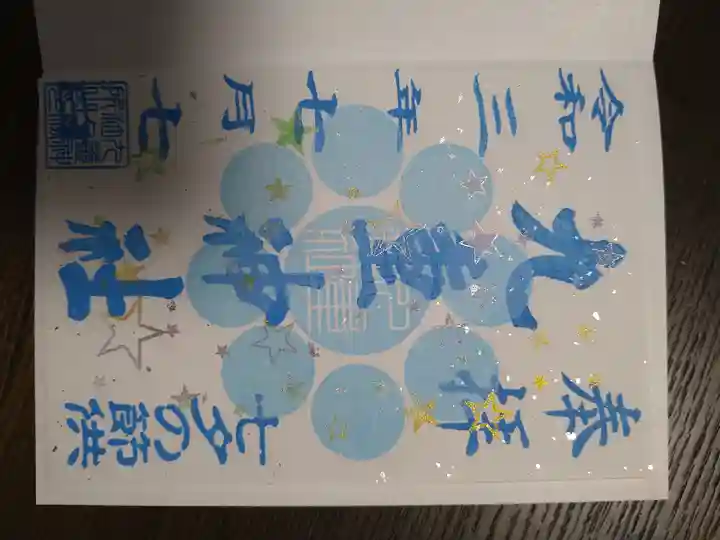 奉拝 七夕の節供
九重神社
令和三年七月七